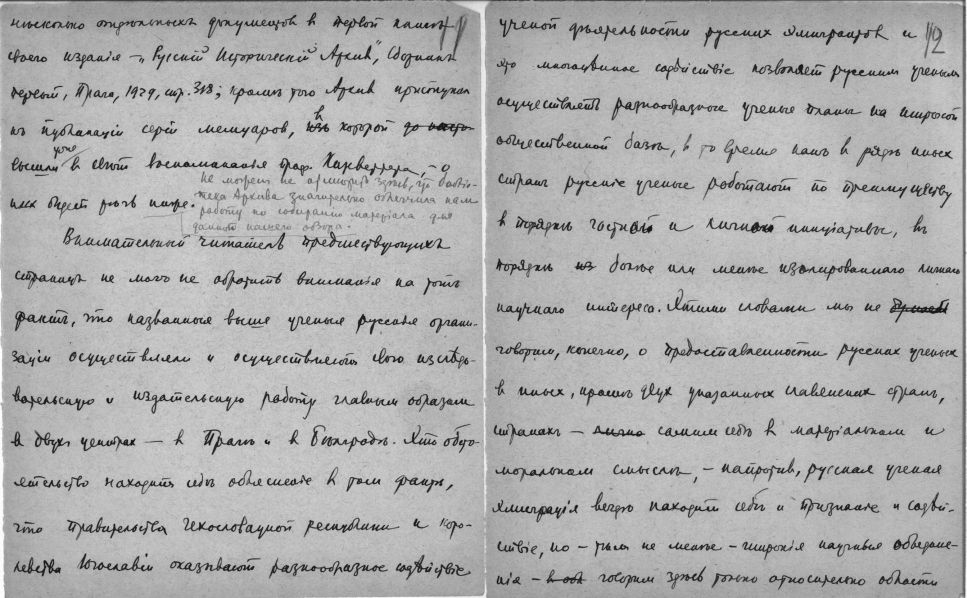 нѣсколько отдѣльныхъ документовъ въ первой книгѣ 11
своего изданія – „Русскій Историческій Архивъ", Сборникъ
первый, Прага, 1929, стр. 318; кромѣ того Архивъ приступилъ
къ публикаціи серіи мемуаровъ, въ которой
уже
вышли въ свѣтъ воспоминанія о
нихъ будетъ рѣчь ниже.
Не можемъ не отмѣтить здѣсь, что библіо-
тека Архива значительно облегчила намъ
работу по собиранію матеріала для
даннаго нашего обзора.
Внимательный читатель предшествующихъ
страницъ не могъ не обратить вниманія на тотъ
фактъ, что названныя выше ученыя русскія органи-
заціи осуществляли и осуществляютъ свою изслѣдо-
вательскую и издательскую работу главнымъ образомъ
въ двухъ центрахъ — въ Прагѣ и въ Бѣлградѣ. Это обсто-
ятельство находитъ себѣ объясненіе въ томъ фактѣ,
что правительства Чехословацкой республики и коро-
левства Югославіи оказываютъ разнообразное содѣйствіе
ученой дѣятельности русскихъ эмигрантовъ и 12
это многоцѣнное содѣйствіе позволяетъ русскимъ ученымъ
осуществлять разнообразные ученые планы на широкой
общественной базѣ, въ то время какъ въ рядѣ иныхъ
странъ русскіе ученые работаютъ по преимуществу
въ порядкѣ частной и личной иниціативы, въ
порядкѣ болѣе или менѣе изолированнаго личнаго
научнаго интереса. Этими словами мы не
говоримъ, конечно, о предоставленности русскихъ ученыхъ
въ иныхъ, кромѣ двухъ указанныхъ славянскихъ странъ,
странахъ — самимъ себѣ въ матеріальномъ и
моральномъ смыслѣ, – напротивъ, русская ученая
эмиграція вездѣ находитъ себѣ и признаніе и содѣй-
ствіе, но – тѣмъ не менѣе – широкія научныя объедине-
нія – говоримъ здѣсь только относительно области